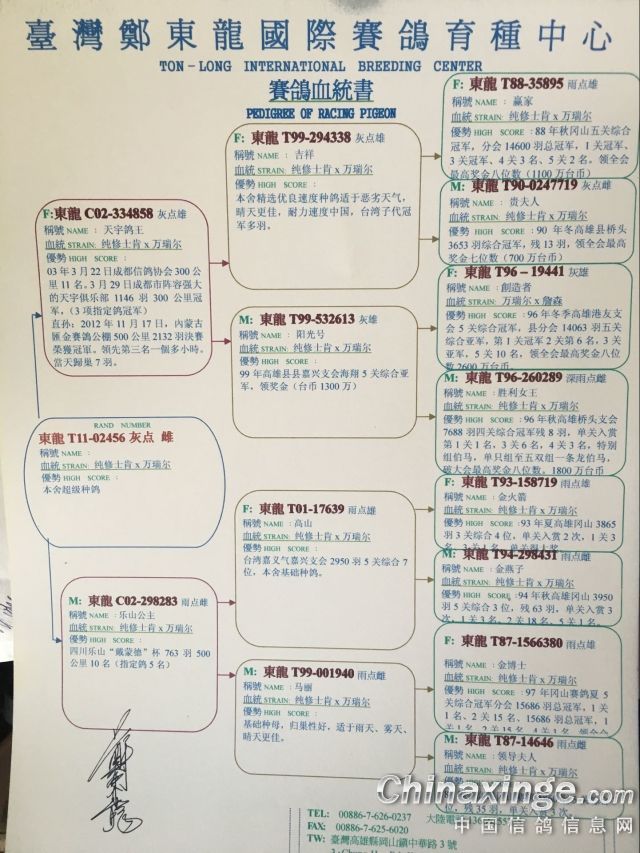 臺灣鄭東龍國際賽鴿育種中心
TON-LONG INTERNATIONAL BREEDING CENTER
賽鴿血統書
PEDIGREE OF RACING PIGEON
RAND NUMBER
東龍 T11-02456 灰点 雌
稱號 NAME :
血統 STRAIN: 纯修士肯 x 万瑞尔
優勢 HIGH SCORE :
本舍超级种鸽
F: 東龍 C02-334858 灰点雄
稱號 NAME : 天宇鸽王
血統 STRAIN: 纯修士肯 x 万瑞尔
優勢 HIGH SCORE :
03 年 3 月 22 日成都信鸽协会 300 公
里 11 名, 3 月 29 日成都市阵容强大
的天宇俱乐部 1146 羽 300 公里冠
军, (3 项指定鸽冠军)
直孙: 2012 年 11 月 17 日, 內蒙古
匯金賽鴿公棚 500 公里 2132 羽決賽
榮獲冠軍。領先第三名一個多小時。
當天歸巢 7 羽。
M: 東龍 C02-298283 雨点雌
稱號 NAME : 乐山公主
血統 STRAIN: 纯修士肯 x 万瑞尔
優勢 HIGH SCORE :
四川乐山“戴蒙德”杯 763 羽 500
公里 10 名 (指定鸽 5 名)
F: 東龍 T99-294338 灰点雄
稱號 NAME : 吉祥
血統 STRAIN: 纯修士肯 x 万瑞尔
優勢 HIGH SCORE :
本舍精选优良速度种鸽适于恶劣天气,
晴天更佳, 耐力速度中国, 台湾子代冠
军多羽。
M: 東龍 T99-532613 灰雄
稱號 NAME : 阳光号
血統 STRAIN: 纯修士肯 x 万瑞尔
優勢 HIGH SCORE :
99 年高雄县县嘉兴支会海翔 5 关综合亚
军, 领奖金 (台币 1300 万)
F: 東龍 T01-17639 雨点雄
稱號 NAME : 高山
血統 STRAIN: 纯修士肯 x 万瑞尔
優勢 HIGH SCORE :
台湾嘉义气嘉兴支会 2950 羽 5 关综合 7
位, 本舍基础种鸽。
M: 東龍 T99-001940 雨点雌
稱號 NAME : 马丽
血統 STRAIN: 纯修士肯 x 万瑞尔
優勢 HIGH SCORE :
基础种母, 归巢性好, 适于雨天、雾天、
晴天更佳。
F: 東龍 T88-35895 雨点雄
稱號 NAME : 赢家
血統 STRAIN: 纯修士肯 x 万瑞尔
優勢 HIGH SCORE : 88 年秋冈山五关综合
冠军, 分会 14600 羽总冠军, 1 关冠军、
3 关冠军、4 关 3 名、5 关 2 名。领全会
最高奖金八位数 (1100 万台币)
M: 東龍 T90-0247719 灰点雌
稱號 NAME : 贵夫人
血統 STRAIN: 纯修士肯 x 万瑞尔
優勢 HIGH SCORE : 90 年冬高雄县桥头
3653 羽综合冠军, 残 13 羽, 领全会最高
奖金七位数 (700 万台币)
F: 東龍 T96－19441 灰雄
稱號 NAME : 創造者
血統 STRAIN: 万瑞尔 x 詹森
優勢 HIGH SCORE : 96 年冬季高雄港友支
会 5 关综合冠军, 县分会 14063 羽五关
综合亚军, 第 1 关冠军 2 关第 6 名, 3 关
亚军, 5 关 10 名, 领全会最高奖金八位
数 2600 万台币。
M: 東龍 T96-260289 深雨点雌
稱號 NAME : 胜利女王
血統 STRAIN: 纯修士肯 x 万瑞尔
優勢 HIGH SCORE : 96 年秋高雄桥头支会
7688 羽四关综合冠军残 8 羽, 单关入赏
第 1 关 1 名, 3 关 6 名, 4 关 3 名, 特别
组伯马, 单只组至五双组一条龙伯马,
破大会最高奖金八位数。1800 万台币
F: 東龍 T93-158719 雨点雄
稱號 NAME : 金火箭
血統 STRAIN: 纯修士肯 x 万瑞尔
優勢 HIGH SCORE : 93 年夏高雄冈山 3865
羽 3 关综合 4 位, 单关入赏 2 次, 1 关 3
M: 東龍 T94-298431 雨点雌
稱號 NAME : 金燕子
血統 STRAIN: 纯修士肯 x 万瑞尔
優勢 HIGH SCORE : 94 年秋高雄冈山 3950
羽 5 关综合 3 位, 残 63 羽, 单关入赏 3
次, 1 关 3 名, 2 关 18 名, 5 关 1
F: 東龍 T87-1566380 雨点雄
稱號 NAME : 金博士
血統 STRAIN: 纯修士肯 x 万瑞尔
優勢 HIGH SCORE : 97 年冈山赛鸽夏 5
关综合冠军分会 15686 羽总冠军, 1 关
1 名、2 关 15 名、15686 羽总冠军, 1
M: 東龍 T87-14646 雨点雌
稱號 NAME : 领导夫人
血統 STRAIN: 纯修士肯 x 万瑞尔
位, 残 35 羽, 单关入赏 3 次,
TEL: 00886-7-626-0237 大陸電話
FAX: 00886-7-625-6020
TW: 臺灣高雄縣岡山鎮中華路 3 號
Chinaxinge.com
中国信鸽信息网